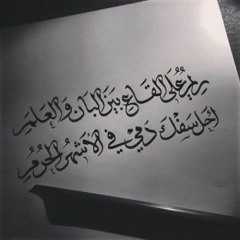 ريم على القاع بين البان والعلم
أحل سفك دمي في الأشهر الحرم